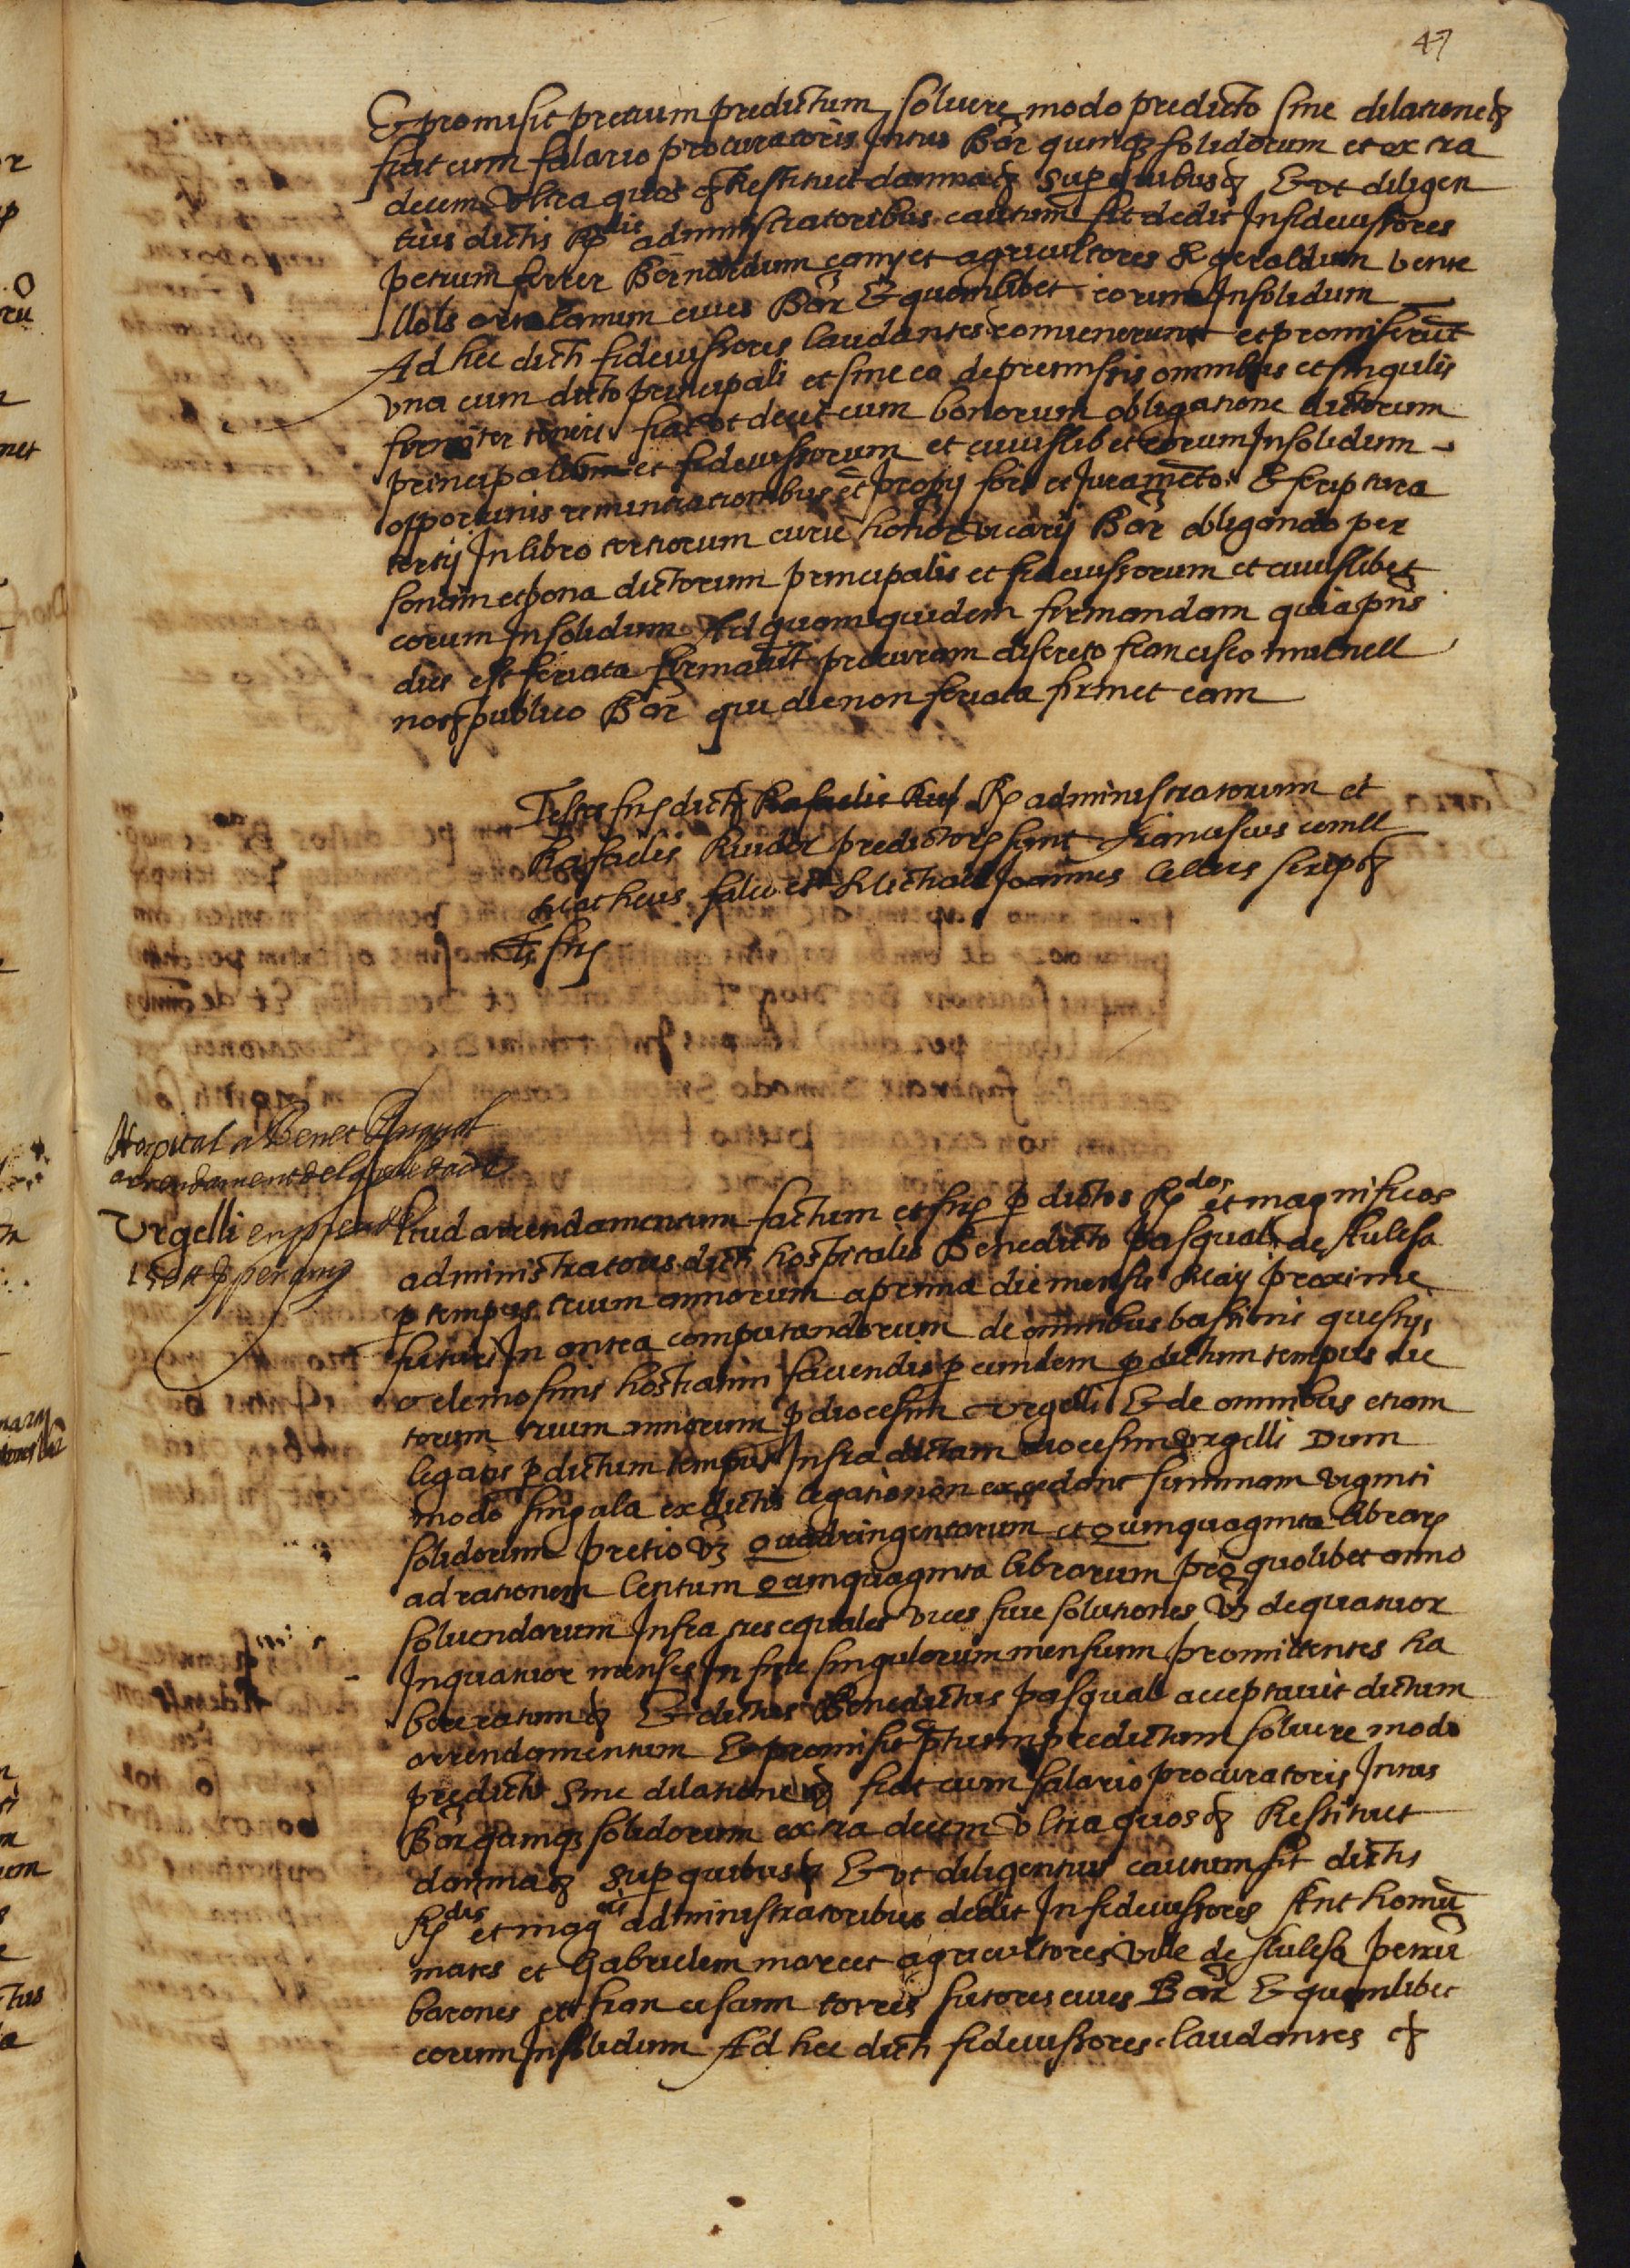 47
Et promisit pretium predictum soluere modo predicto sine dilatione &
fiat cum salario procuratoris Intus Bar quinq solidorum et extra
decem Vltra quos & Restituet damna & Super quibus & Et vt diligen
tius dictis Rdis administratoribus cautum sit dedit In fideiussores
petrum ferrer Bernardum comet agricultores & geraldum vente
llols ortolanum ciues Bar Et quemlibet eorum Insolidum
Ad hec dicti fideiussores laudantes conuenerunt et promiserut
vna cum dicto principali et sine eo de premissis omnibus et singulis
firmiter teneri fiat vt decet cum bonorum obligatione dictorum
principalium et fideiussorum et cuiuslibet eorum Insolidum
opportunis renuntiationibus et proprij fori et Jurameto Et scriptura
tertij In libro tertiorum curie honor vicarij Bar obligando per
sonam et bona dictorum principalis et fideiussorum et cuiuslibet
eorum Insolidum Ad quam quidem firmandam quia pns
dies est feriata firmarut procuram discreto francisco mulnell
not publico Bar qui die non feriata firmet eam
Testes firme dictor Rafaelis Ri R administratorum et
Rafaelis Riudor predictor sunt franciscus comell
matheus saluet & Michael Joannes Celles script
Ts fir
Hospital a Benet Pasqual
arrendament del
Vrgelli
Aliud arrendamentum factum et fir p dictos Rdos et magnificos
administratores dicti hospitalis Benedicto pasqual de Aulesa
p tempus trium annorum a prima die mensis Maij proxime
futuri In antea computandorum de omnibus bastinis questijs
elemosinis hostiatim faciendis p eumdem p dictum tempus dic
torum trium annorum p diocesim Vrgelli Et de omnibus etiam
legatis p dictum tempus Infra dictam diocesim Vrgelli Dum
modo singula ex dictis legatio non excedant summam viginti
solidorum pretio vz Quadringentarum et Quinquaginta librar
ad rationem Centum Quinquaginta librarum pro quolibet anno
soluendarum Infra tres equales vices siue solutiones vz de quatuor
In quatuor menses In fine singulorum mensium promittentes ha
bere ratum & Et dictus Benedictus pasqual acceptauit dictum
arrendamentum Et promisit ptium predictum soluere modo
predicto Sine dilatione & fiat cum salario procuratoris Intus
Bar quinq solidorum extra decem Vltra quos & Restituet
damna & Super quibus & Et vt diligentius cautum sit dictis
Rdis et mag administratoribus dedit In fideiussores Anthoniu
mates et Gabrielem marcet agricultores ville de Aulesa petru
barones et franciscum torres sutores ciues Bar Et quemlibet
eorum Insolidum Ad hec dicti fideiussores laudantes &